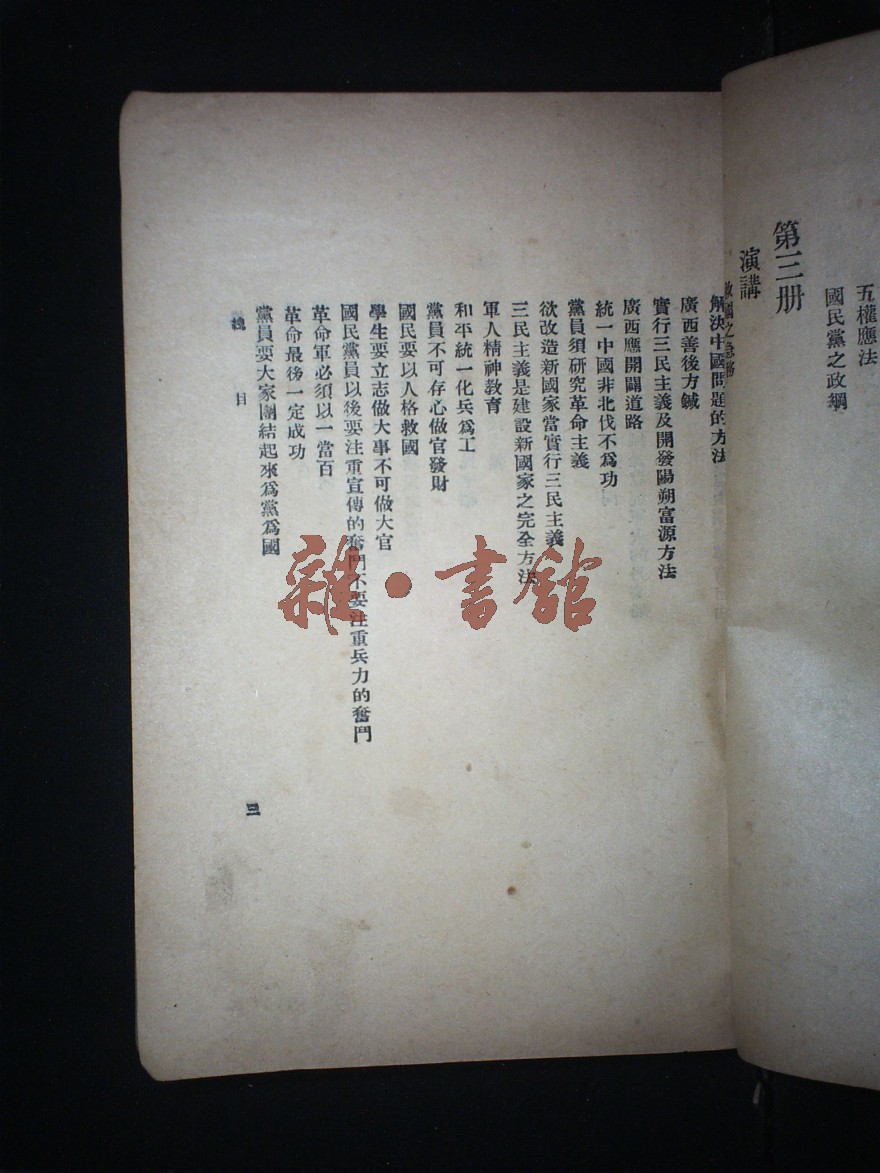 五權應法
國民黨之政綱
第三册
演講
救國之急務
解決中國問題的方法
廣西善後方鍼
實行三民主義及開發陽朔富源方法
廣西應開闢道路
統一中國非北伐不爲功
黨員須研究革命主義
欲改造新國家當實行三民主義
三民主義是建設新國家之完全方法
軍人精神教育
和平統一化兵爲工
黨員不可存心做官發財
國民要以人格救國
學生要立志做大事不可做大官
國民黨員以後要注重宣傳的奮鬥不要注重兵力的奮鬥
革命軍必須以一當百
革命最後一定成功
黨員要大家團結起來爲黨爲國
總目
三
雜·書館